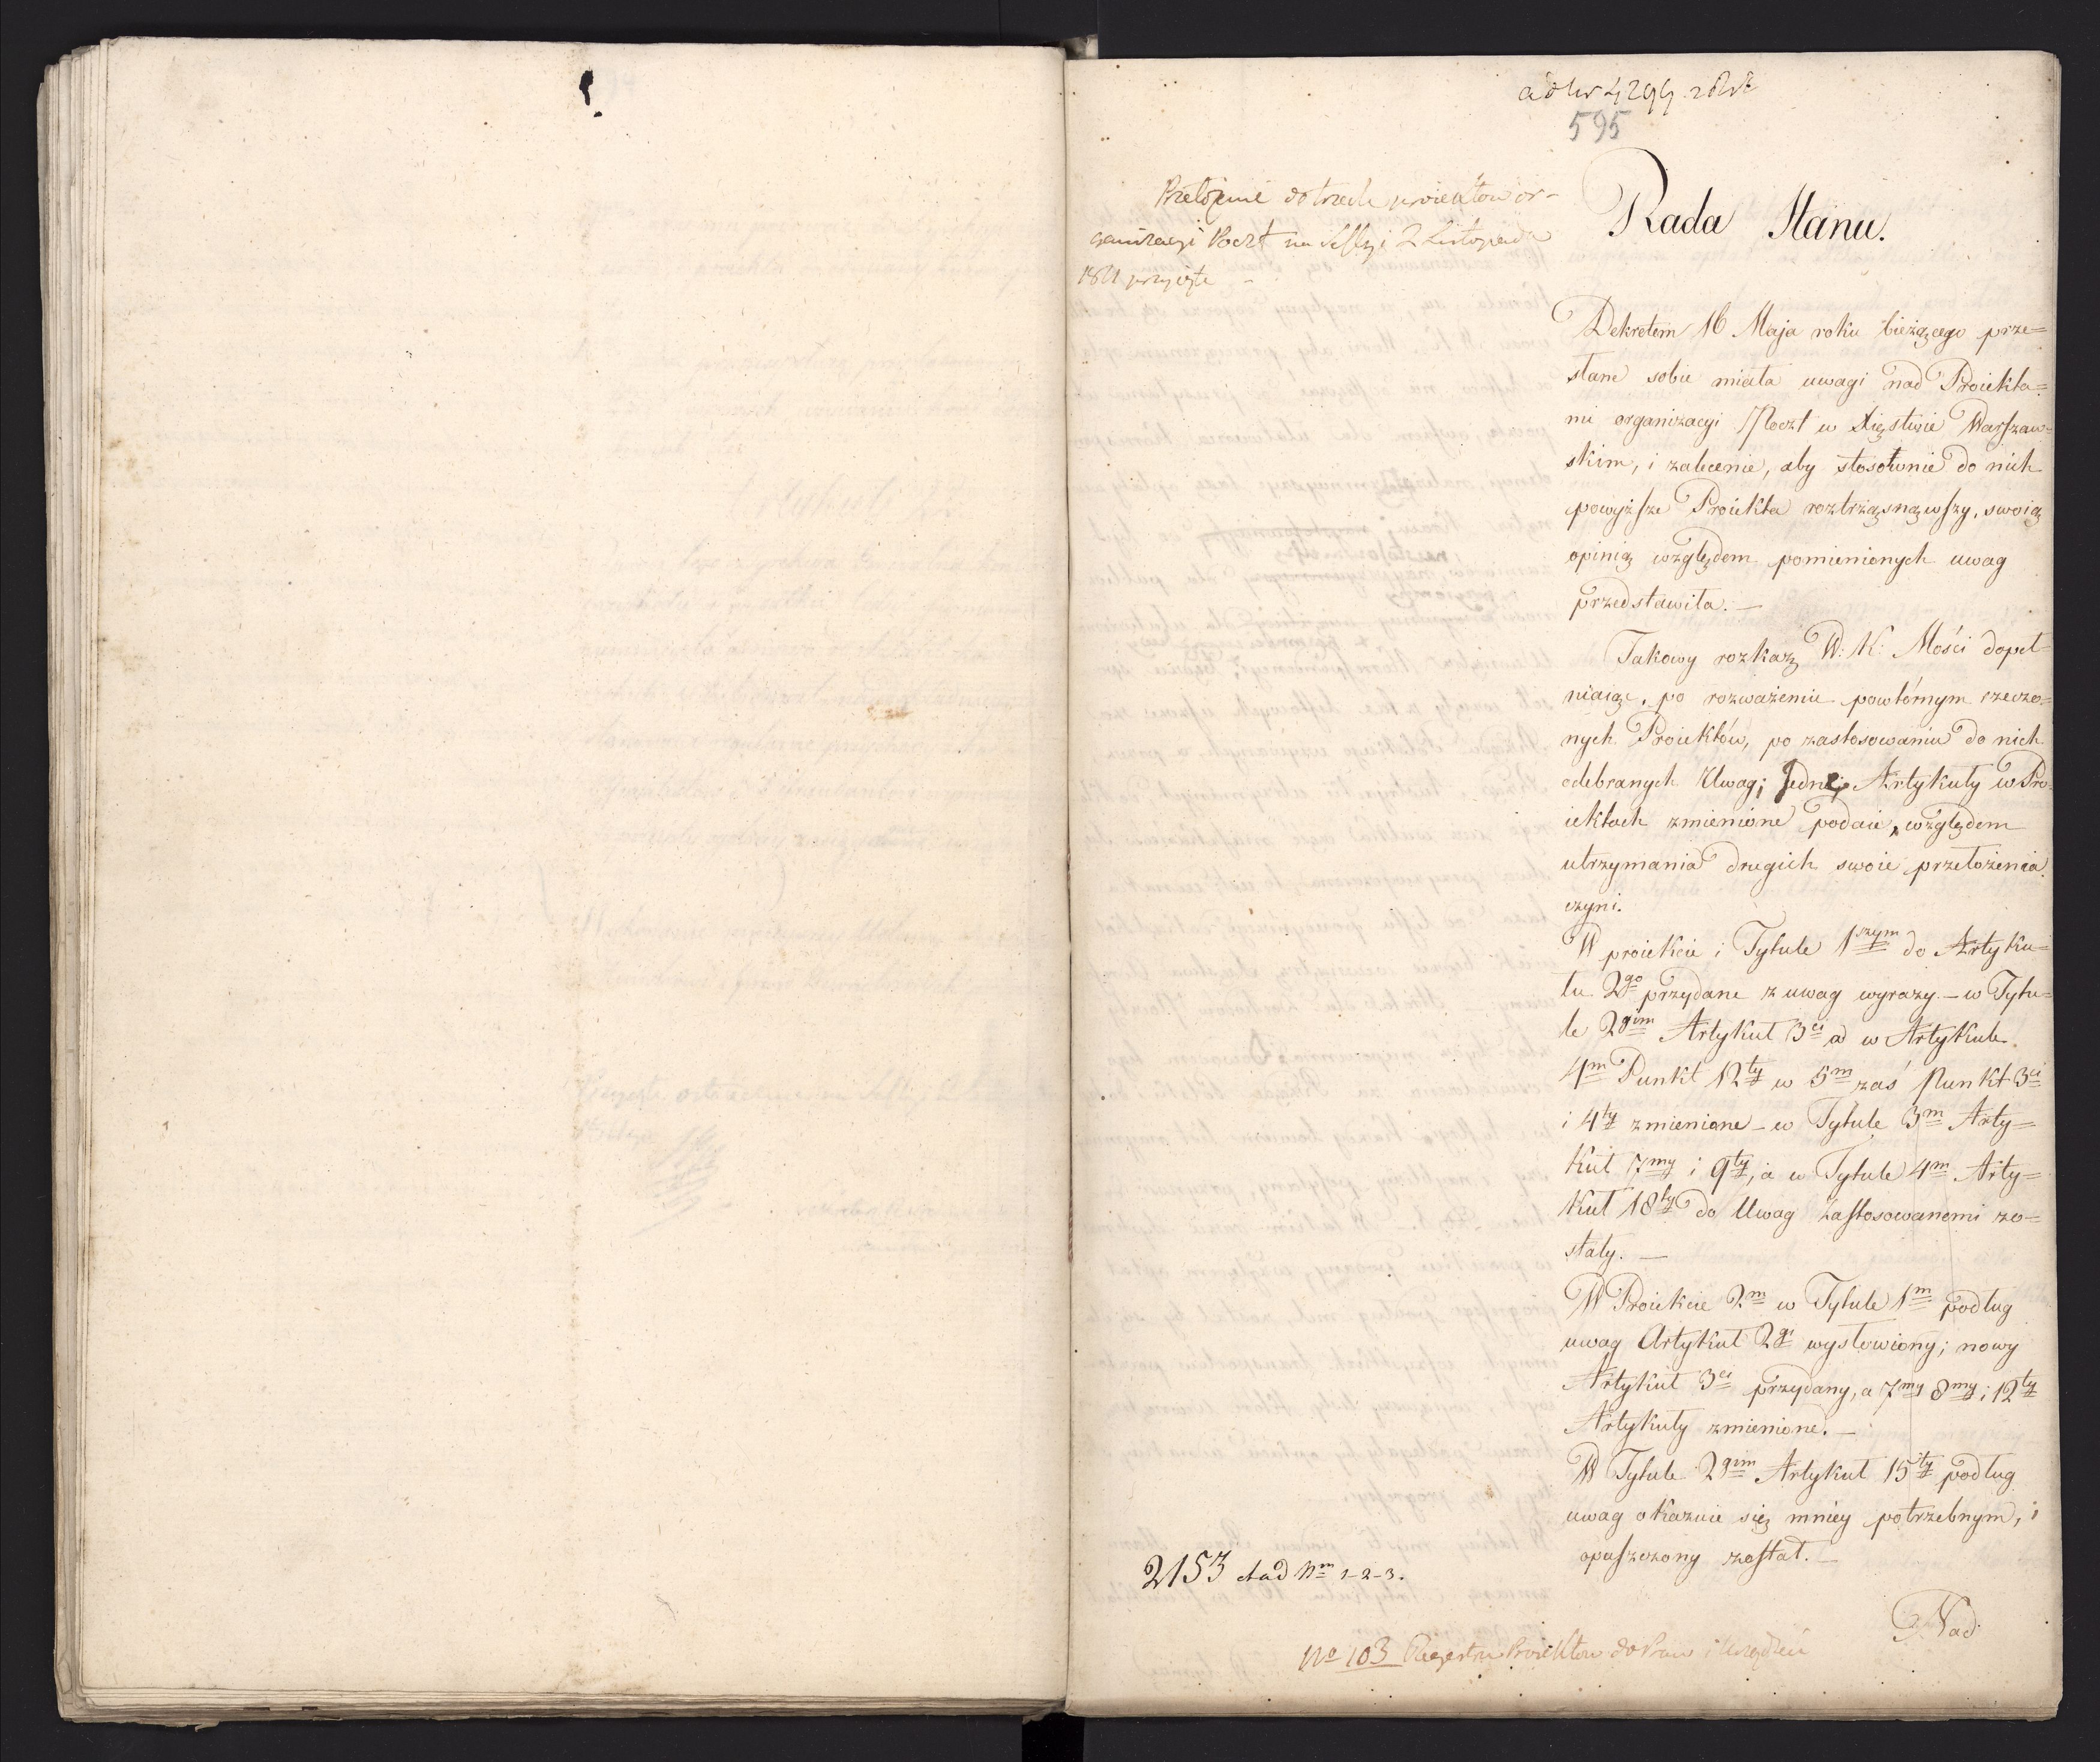 ad Nr 4299
595
Przełożenie do trzech proiektow or-
ganizacyi Poczt na Sessyi 2 Listopada
1811 przyięte -
Rada Stanu.
Dekretem 16 Maja roku bieżącego prze=
słane sobie miała uwagi nad Proiekta=
mi organizacyi Poczt w Xięstwie Warszaw=
skim, i zalecenie, aby stosownie do nich
powyższe Proiekta roztrząsnąwszy, swoią
opinią względem pomienionych uwag
przedstawiła. —
Takowy rozkaz W: K: Mości dopeł=
niaiąc, po rozważeniu powtórnym rzeczo=
nych Proiektów, po zastosowaniu do nich
odebranych Uwag; Jedne Artykuły w Pro=
iektach zmienione podaie, względem
utrzymania drugich swoie przełożenia
czyni.
W proiekcie i Tytule 1szym do Artyku=
łu 2go przydane z uwag wyrazy — w Tytu=
le 2gim Artykuł 3ci a w Artykule
4m Punkt 12ty w 5m zaś Punkt 3ci
i 4ty zmienione — w Tytule 3m Arty=
kuł 7my i 9ty, a w Tytule 4m Arty=
kuł 18ty do Uwag zastosowanemi zo=
stały. —
W Proiekcie 2m w Tytule 1m podług
uwag Artykuł 2gi wysłowiony; nowy
Artykuł 3ci przydany, a 7my 8my i 12ty
Artykuły zmienione. —
W Tytule 2gim Artykuł 15ty podług
uwag okazuie się mniey potrzebnym, i
opuszczony został. —
2153 ad Nm 1-2-3.
Nad
No 103 Regestru Proiektow do Praw i Urządzeń